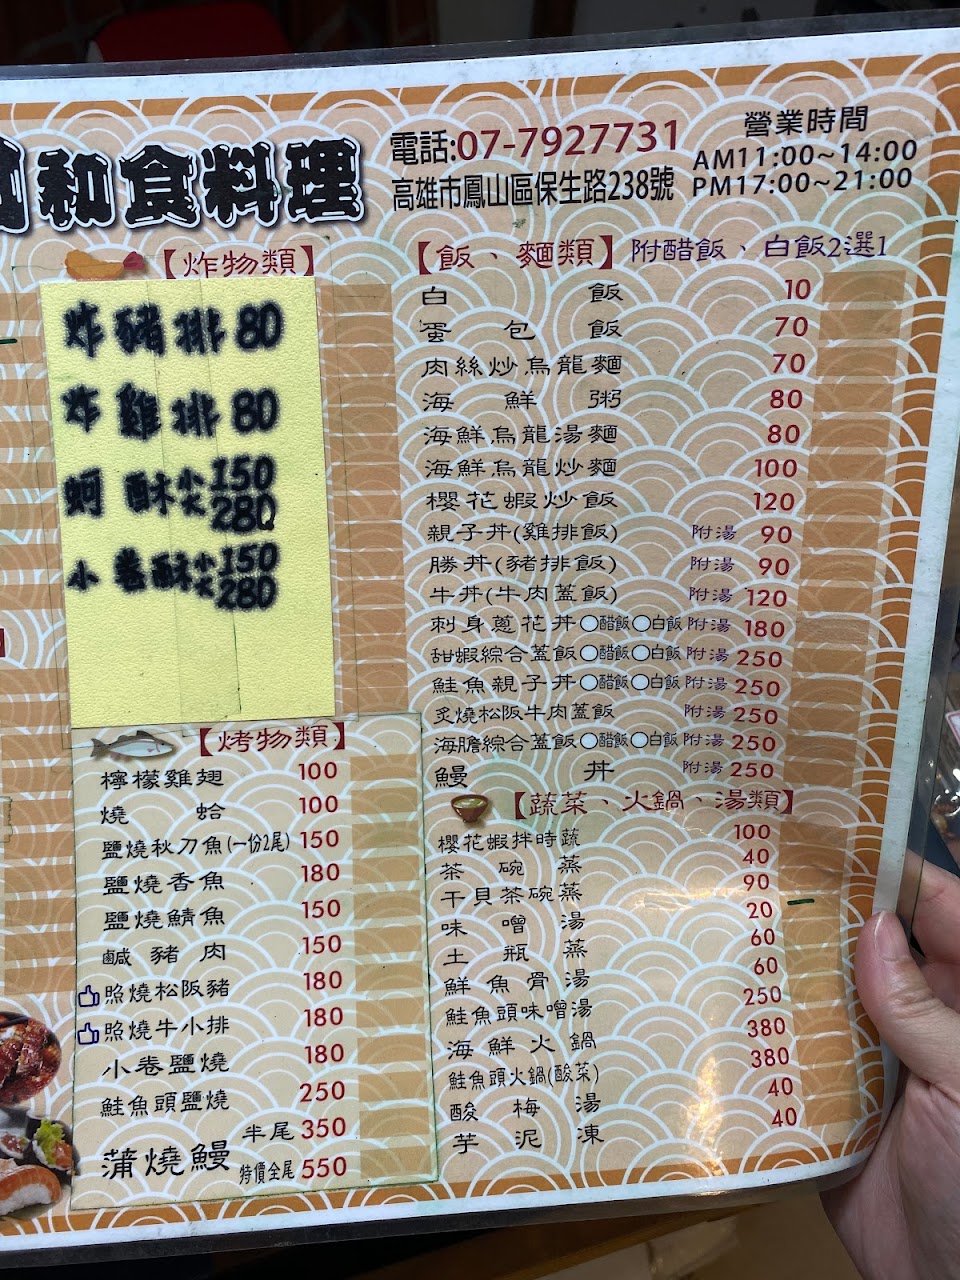 和食料理
電話:07-7927731
高雄市鳳山區保生路238號
營業時間
AM11:00~14:00
PM17:00~21:00
【炸物類】
炸豬排80
炸雞排80
蚵酥 小150 大280
小卷酥 小150 大280
【烤物類】
檸檬雞翅 100
燒蛤 100
鹽燒秋刀魚(一份2尾) 150
鹽燒香魚 180
鹽燒鯖魚 150
鹹豬肉 150
照燒松阪豬 180
照燒牛小排 180
小卷鹽燒 180
鮭魚頭鹽燒 250
蒲燒鰻 半尾 350
特價全尾 550
【飯、麵類】附醋飯、白飯2選1
白飯 10
蛋包飯 70
肉絲炒烏龍麵 70
海鮮粥 80
海鮮烏龍湯麵 80
海鮮烏龍炒麵 100
櫻花蝦炒飯 120
親子丼(雞排飯) 附湯 90
勝丼(豬排飯) 附湯 90
牛丼(牛肉蓋飯) 附湯 120
刺身蔥花丼○醋飯○白飯 附湯 180
甜蝦綜合蓋飯○醋飯○白飯 附湯 250
鮭魚親子丼○醋飯○白飯 附湯 250
炙燒松阪牛肉蓋飯 附湯 250
海膽綜合蓋飯○醋飯○白飯 附湯 250
鰻丼 附湯 250
【蔬菜、火鍋、湯類】
櫻花蝦拌時蔬 100
茶碗蒸 40
干貝茶碗蒸 90
味噌湯 20
土瓶蒸 60
鮮魚骨湯 60
鮭魚頭味噌湯 250
海鮮火鍋 380
鮭魚頭火鍋(酸菜) 380
酸梅湯 40
芋泥凍 40